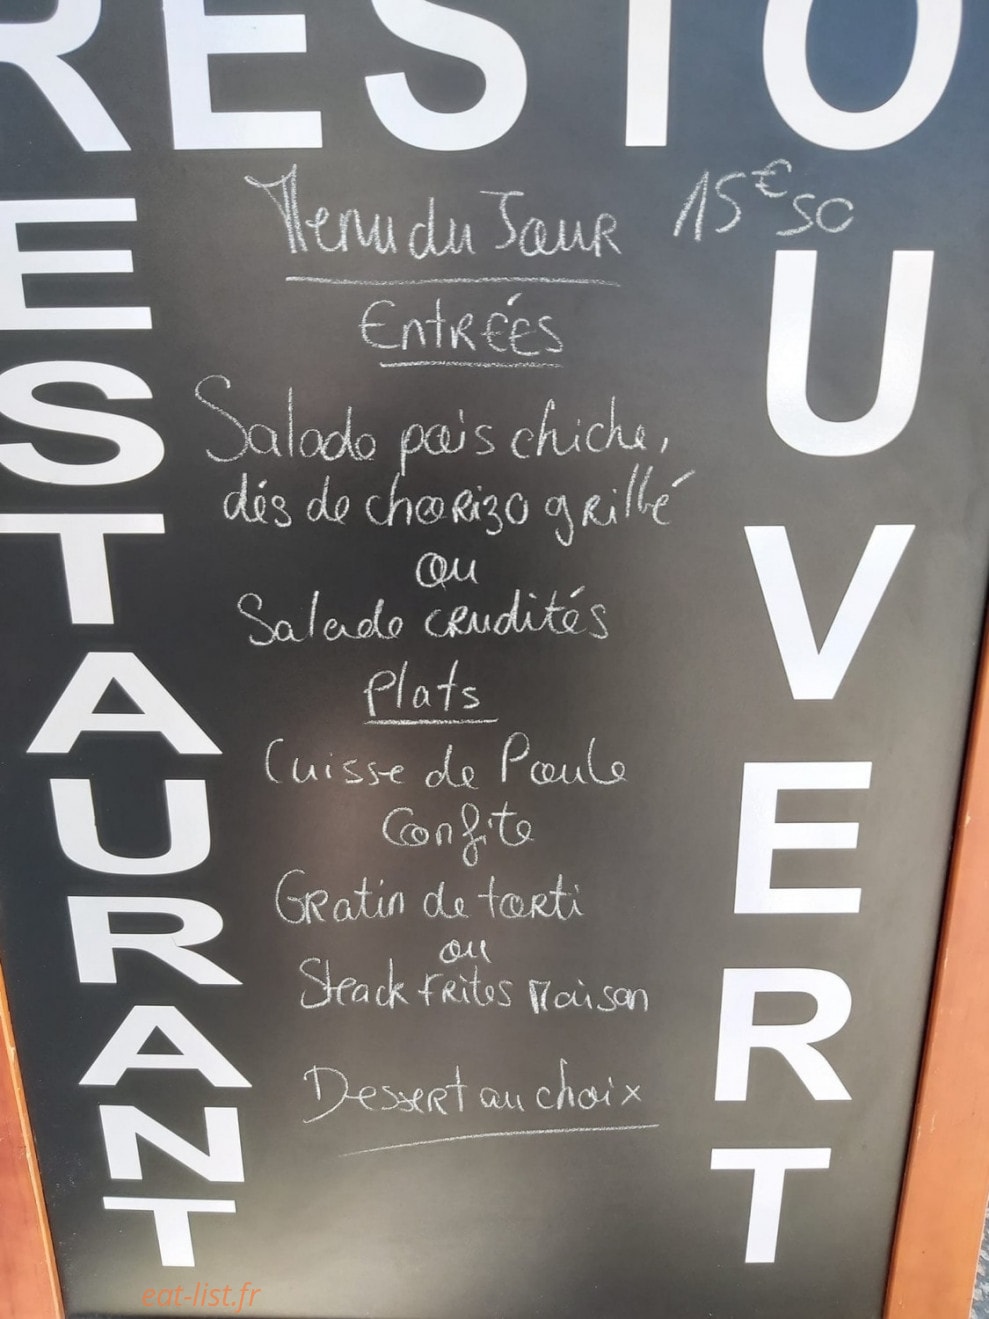 RESTO
RESTAURANT
OUVERT
Menu du Jour 15€50
Entrées
Salade pois chiche,
dés de chorizo grillé
ou
Salade crudités
Plats
Cuisse de Poule
Confite
Gratin de torti
ou
Steack frites Maison
Dessert au choix
eat-list.fr